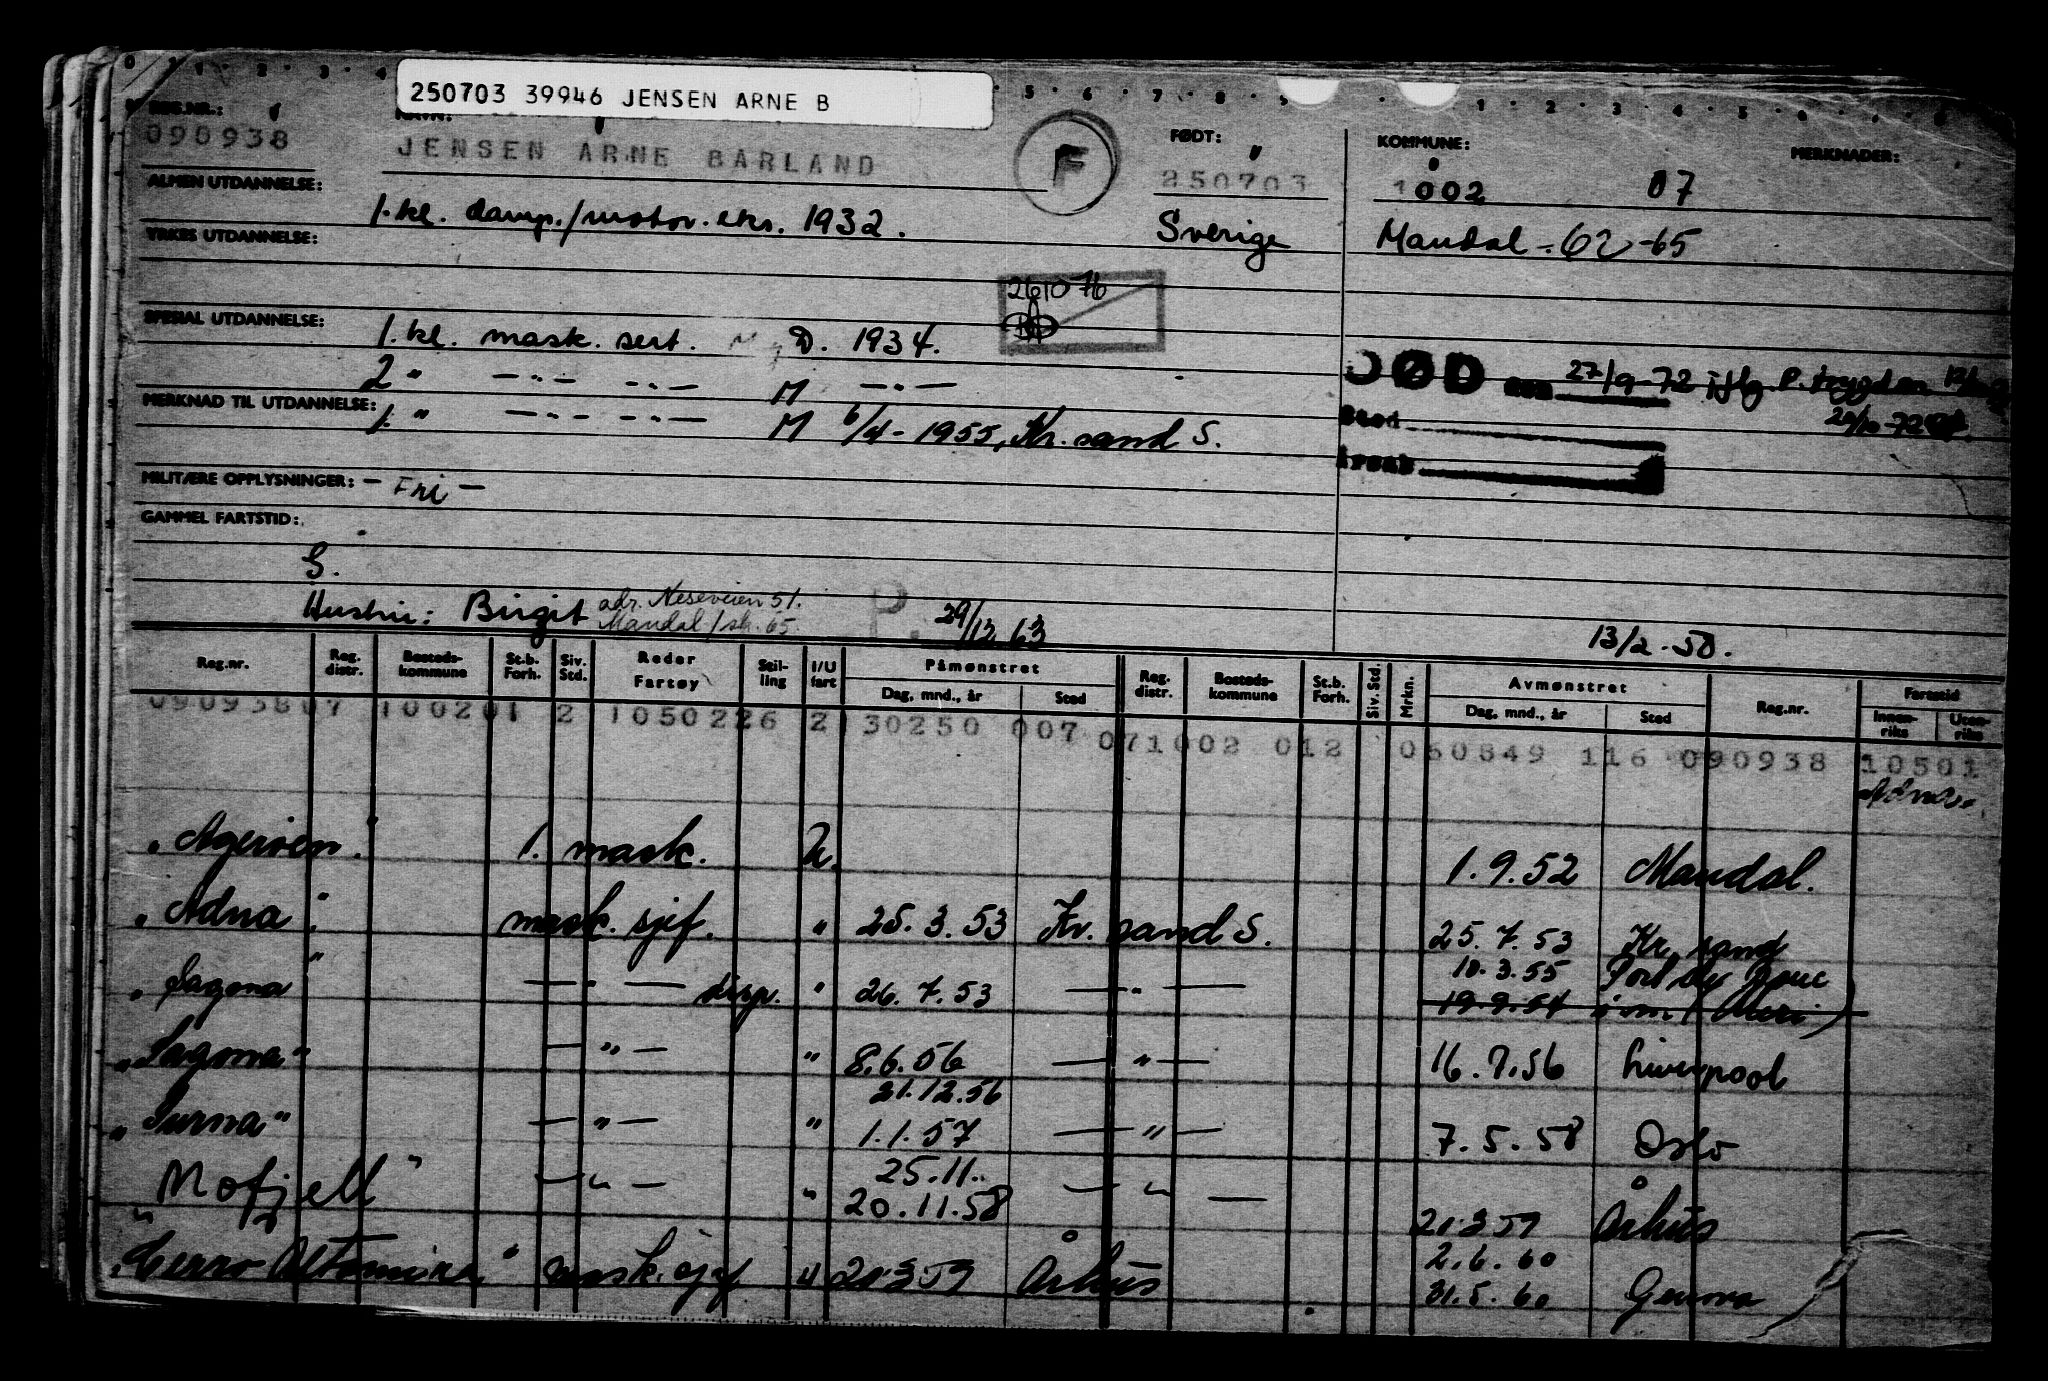 250703 39946 JENSEN ARNE B
REG.NR.: NAVN: FØDT: KOMMUNE: MERKNADER:
090938 JENSEN ARNE BÅRLAND F 250703 1002 07
ALMEN UTDANNELSE: 1. kl. damp./motor. eks. 1932. Sverige Mandal - 62 - 65
YRKES UTDANNELSE:
261076
SPESIAL UTDANNELSE: 1. kl. mask. sert. D. 1934.
2 " — " — — " — M — " —
DØD 27/9-72 iflg. R. trygden
MERKNAD TIL UTDANNELSE: 1. " — " — — " — M 6/4 - 1955, Kr. sand S.
Sted
Årsak
MILITÆRE OPPLYSNINGER: - Fri -
GAMMEL FARTSTID:
G.
Hustru: Birgit adr. Neseveien 51. Mandal / sk. 65. P. 29/12 63
13/2 - 50.
Reg.nr. Reg. distr. Bosteds- kommune St.b. Forh. Siv. Std. Reder Fartøy Stil- ling I/U fart Påmønstret Dag, mnd., år Sted Reg. distr. Bosteds- kommune St.b. Forh. Siv. Std. Mrkn. Avmønstret Dag, mnd., år Sted Reg.nr. Fartstid Innen- riks Uten- riks
09093807 100201 2 1050226 2 130250 007 071002 012 060849 116 090938 10501
"Ageroen." 1. mask. U. 1.9.52 Mandal.
"Adna". mask. sjef. " 25.3.53 Kr. sand S. 25.7.53 Kr. sand
"Sagona" — " — disp. " 26.7.53 — " — 10.3.55 Port de Bouc
19.9.54
"Sagona" — " — " 8.6.56 — " — 16.7.56 Liverpool
21.12.56
"Surna" — " — " 1.1.57 — " — 7.5.58 Oslo
25.11.
"Mofjell" — " — " 20.11.58 — " — 21.3.59 Århus
2.6.60
"Cerro Altamira" mask. sjef " 21.3.59 Århus 31.5.60 Genova